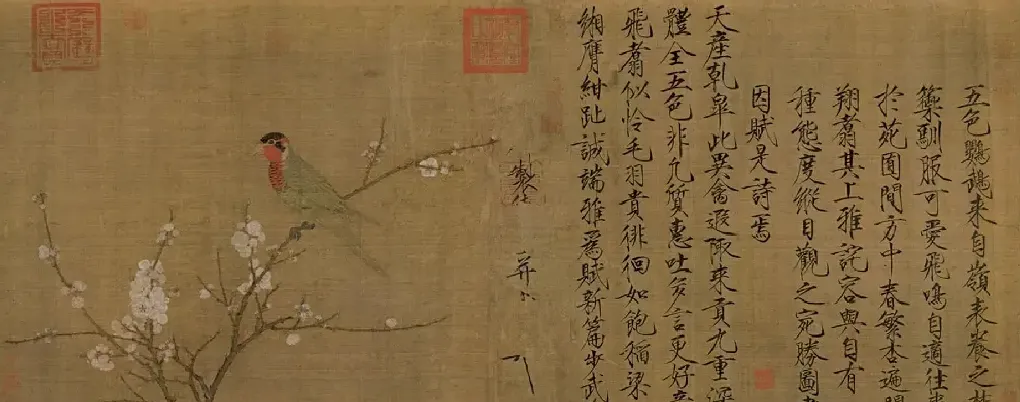 五色鸚鵡來自嶺表養之
籞馴服可愛飛鳴自適往
於苑囿間方中春繁杏遍
翔翥其上雅詫容與自有
種態度縱目觀之宛勝圖
因賦是詩焉
天產乾皋此異禽遐陬來貢九重深
體全五色非凡質惠吐多言更好
飛翥似怜毛羽貴徘徊如飽稻粱
緗膺紺趾誠端雅爲賦新篇步武
製
并